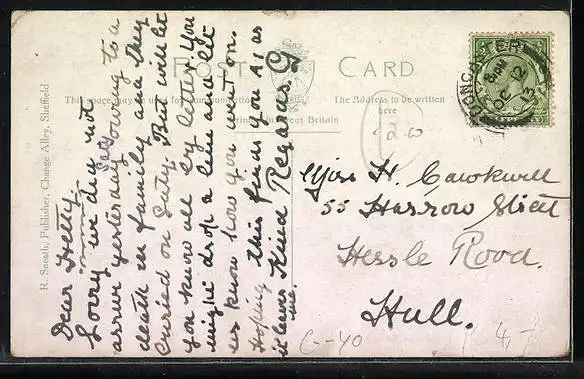 POST CARD
This space may be used for communication
The Address to be written
here
Printed in Great Britain
R. Sneath, Publisher, Change Alley, Sheffield
DONCASTER
8 PM
OC 12
13
Dear Nelly
Sorry we did not
arrive yesterday Saty owing to a
death in family and they
buried on Saty. But will let
you know all by letter. You
might drop a line and let
us know how you went on.
Hoping this finds you A1 as
it leaves me. Kind Regards. G
Miss H. Cawkwell
55 Harrow Street
Hessle Road.
Hull.
12.00
C-40
4,-